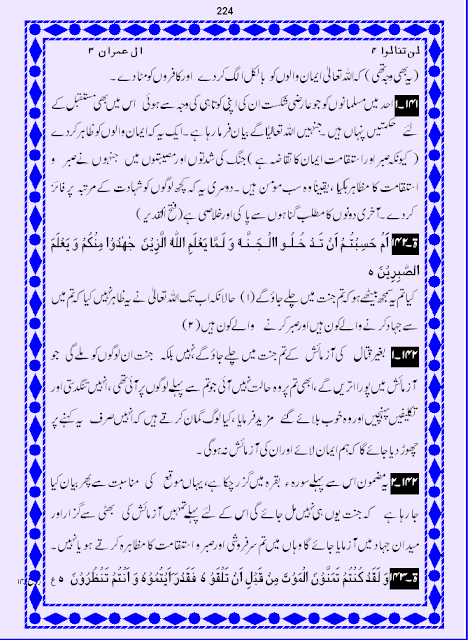 224
لن تنالوا ۴ ال عمران ۳
(یہ بھی وجہ تھی) کہ اللہ تعالیٰ ایمان والوں کو بالکل الگ کر دے اور کافروں کو مٹا دے۔
۱۴۱۔۱ احد میں مسلمانوں کو جو عارضی شکست ان کی اپنی کوتاہی کی وجہ سے ہوئی اس میں بھی مستقبل کے
لئے حکمتیں پنہاں ہیں۔ جنہیں اللہ تعالیٰ آگے بیان فرما رہا ہے۔ ایک یہ کہ ایمان والوں کو ظاہر کر دے
(کیونکہ صبر اور استقامت ایمان کا تقاضہ ہے) جنگ کی شدتوں اور مصیبتوں میں جنہوں نے صبر و
استقامت کا مظاہرہ کیا، یقیناً وہ سب مومن ہیں۔ دوسری یہ کہ کچھ لوگوں کو شہادت کے مرتبہ پر فائز
کر دے۔ آخری دونوں کا مطلب گناہوں سے پاکی اور خلاصی ہے (فتح القدیر)
ة۔۱۴۲ اَمْ حَسِبْتُمْ اَنْ تَدْ خُلُوا الْجَنَّةَ وَ لَمَّا یَعْلَمِ اللّٰهُ الَّذِیْنَ جٰهَدُوْا مِنْكُمْ وَ یَعْلَمَ
الصّٰبِرِیْنَ ه
کیا تم یہ سمجھ بیٹھے ہو کہ تم جنت میں چلے جاؤ گے (۱) حالانکہ اب تک اللہ تعالیٰ نے یہ ظاہر نہیں کیا کہ تم میں
سے جہاد کرنے والے کون ہیں اور صبر کرنے والے کون ہیں (۲)
۱۴۲۔۱ بغیر قتال کی آزمائش کے تم جنت میں چلے جاؤ گے نہیں بلکہ جنت ان لوگوں کو ملے گی جو
آزمائش میں پورا اتریں گے، ابھی تم پر وہ حالت نہیں آئی جو تم سے پہلے لوگوں پر آئی تھی، انہیں تنگدستی اور
تکلیفیں پہنچیں اور وہ خوب ہلائے گئے مزید فرمایا، کیا لوگ گمان کرتے ہیں کہ انہیں صرف یہ کہنے پر
چھوڑ دیا جائے گا کہ ہم ایمان لائے اور ان کی آزمائش نہ ہوگی۔
۱۴۲۔۲ یہ مضمون اس سے پہلے سورہء بقرہ میں گزر چکا ہے، یہاں موقع کی مناسبت سے پھر بیان کیا
جا رہا ہے کہ جنت یوں ہی نہیں مل جائے گی اس کے لئے پہلے تمہیں آزمائش کی بھٹی سے گزارا اور
میدان جہاد میں آزمایا جائے گا وہاں میں تم سرفروشی اور صبر و استقامت کا مظاہرہ کرتے ہو یا نہیں۔
ة۔۱۴۳ وَ لَقَدْ كُنْتُمْ تَمَنَّوْنَ الْمَوْتَ مِنْ قَبْلِ اَنْ تَلْقَوْهُ فَقَدْ رَاَیْتُمُوْهُ وَ اَنْتُمْ تَنْظُرُوْنَ ه ع